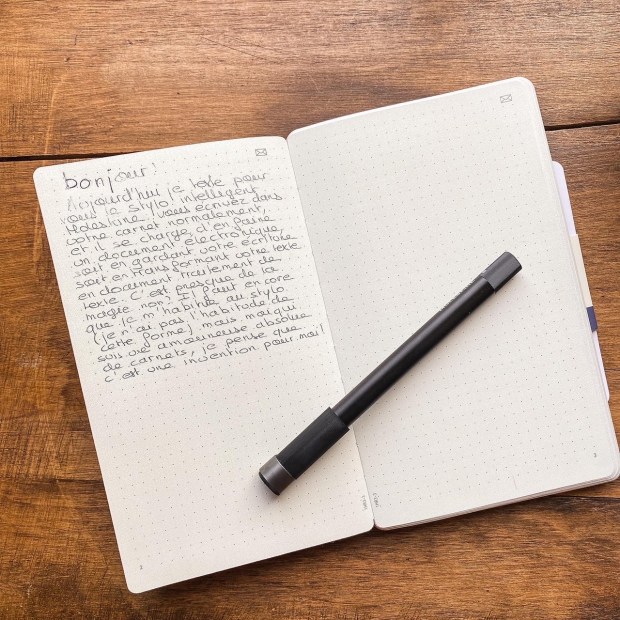 bonjour!
Aujourd'hui je teste pour
vous le stylo intelligent
Moleskine. Vous écrivez dans
votre carnet normalement,
et il se charge d'en faire
un document électronique,
soit en gardant votre écriture
soit en transformant votre texte
en document traitement de
texte. C'est presque de la
magie non? Il faut encore
que je m'habitue au stylo
(je n'ai pas l'habitude de
cette forme) mais moi qui
suis une amoureuse absolue
de carnets, je pense que
c'est une invention pour moi!
2
3